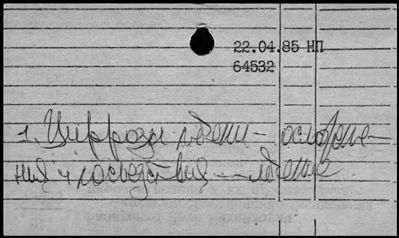 22.04.85 НП
64532
1. Циррозы печени – осложне-
ния и последствия – лечение.